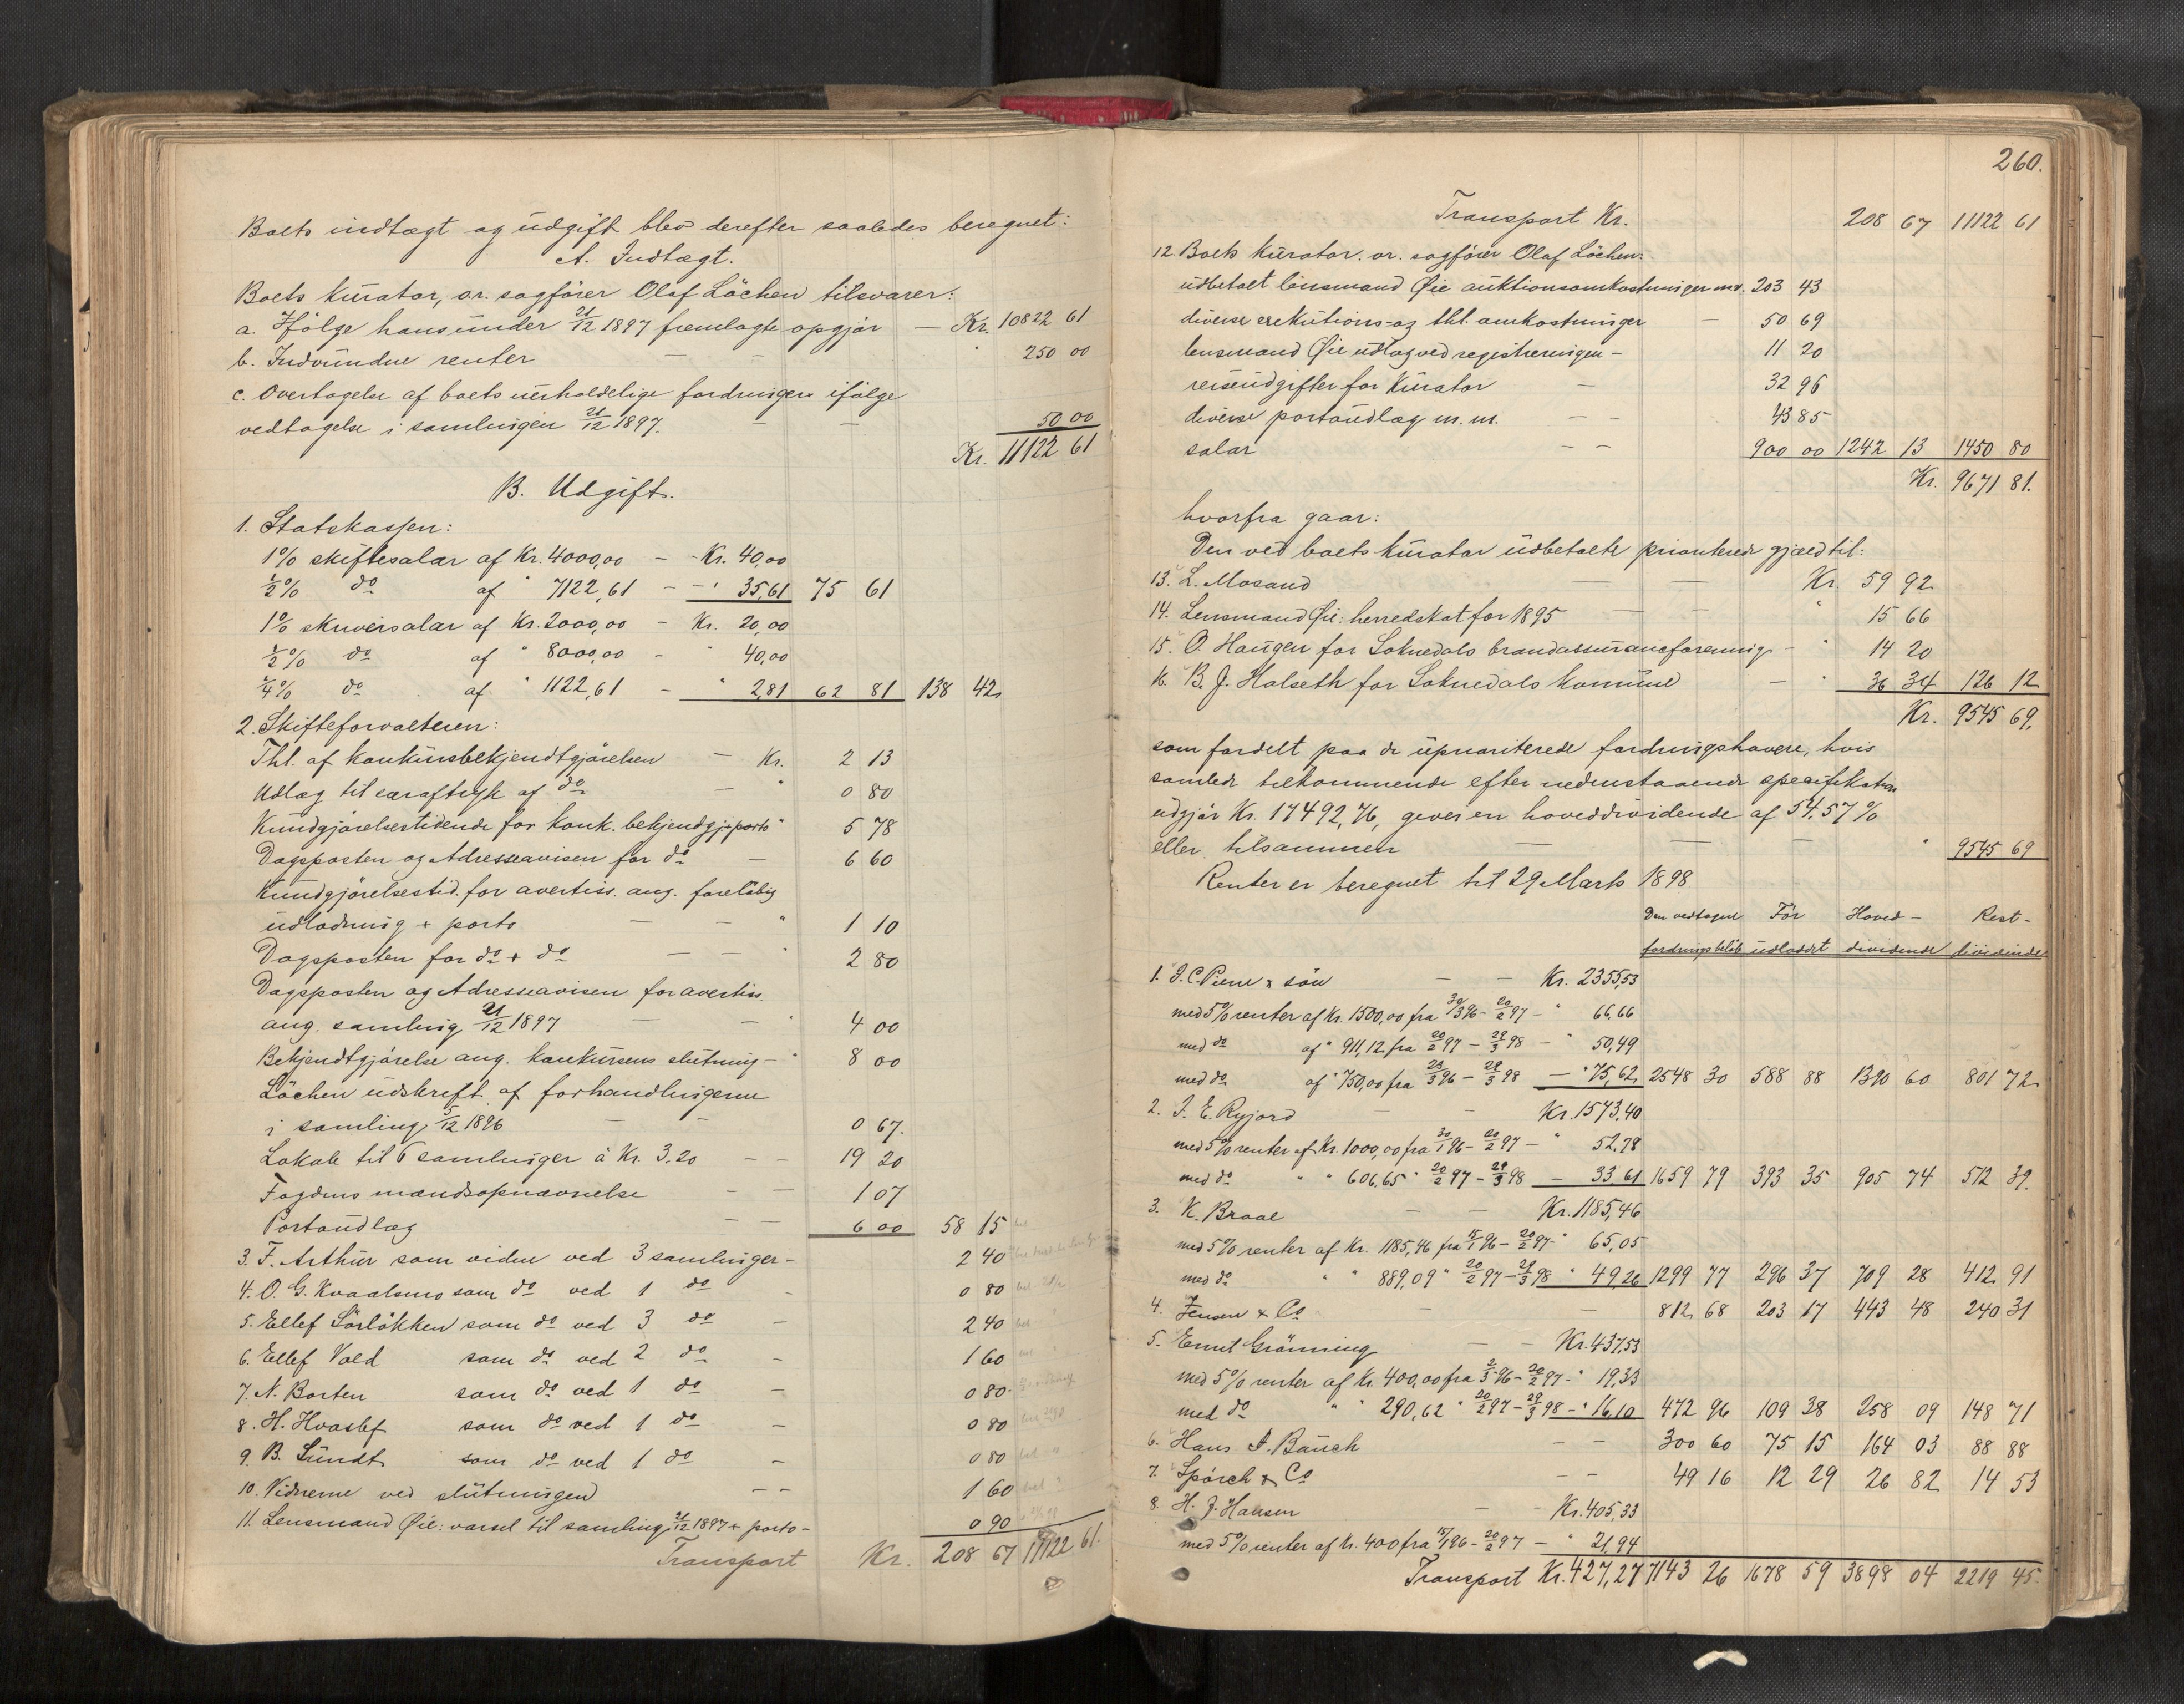 Boets indtægt og udgift blev derefter saaledes beregnet:
A. Indtægt.
Boets kurator, or. sagfører Olaf Löchen tilsvarer:
a. Ifölge hans under 21/12 1897 fremlagte opgjör — Kr. 10822 61
b. Indvundne renter — — " 250 00
c. Overtagelse af boets uerholdelige fordringer ifölge
vedtagelse i samlingen 21/12 1897. — — 50 00
Kr. 11122 61
B. Udgift.
1. Statskassen:
1% skiftesalar af Kr. 4000,00 — Kr. 40,00
1/2% do af " 7122,61 — " 35,61 75 61
1% skriversalar af Kr. 2000,00 — Kr. 20,00
1/2% do af " 8000,00 — " 40,00
1/4% do af " 1122,61 — " 2,81 62 81 138 42
2. Skifteforvalteren:
Thl. af konkursbekjendtgjörelsen — Kr. 2 13
Udlag til særaftryk af do — " 0 80
Kundgjörelsestidende for konk. bekjendtgj. + porto " 5 78
Dagsposten og Adresseavisen for do — 6 60
Kundgjörelsestid. for avertiss. ang. forelöbig
udlodning + porto — — " 1 10
Dagsposten for do + do — — " 2 80
Dagsposten og Adresseavisen for avertiss.
ang. samling 21/12 1897 — — " 4 00
Bekjendtgjörelse ang. konkursens slutning — " 8 00
Löchen udskrift af forhandlingerne
i samling 5/12 1896 — — 0 67.
Lokale til 6 samlinger à Kr. 3.20 — — 19 20
Fogdens mandsopnævnelse — — 1 07
Portoudlæg — — 6 00 58 15
3. F. Arthur som vidne ved 3 samlinger — 2 40
4. O. G. Kvaalsmo som do ved 1 do — 0 80
5. Ellef Sörlökken som do ved 3 do — 2 40
6. Ellef Vold som do ved 2 do — 1 60
7. N. Borten som do ved 1 do — 0 80
8. H. Hvaslef som do ved 1 do — 0 80
9. B. Lundt som do ved 1 do — 0 80
10. Vidnerne ved slutningen — — 1 60
11. Lensmand Øie: varsel til samling 21/12 1897 + porto — 0 90
Transport Kr. 208 67 11122 61.
260.
Transport Kr. 208 67 11122 61
12. Boets kurator, or. sagförer Olaf Löchen:
udbetalt lensmand Øie auktionsomkostninger m.v. 203 43
diverse exekutions- og thl. omkostninger — 50 69
lensmand Øie udlæg ved registreringen — 11 20
reiseudgifter for kurator — 32 96
diverse portoudlæg m. m. — — 43 85
salar — — 900 00 1242 13 1450 80
Kr. 9671 81.
hvorfra gaar:
Den ved boets kurator udbetalte prioriterede gjæld til:
13. L. Mosand — Kr. 59 92
14. Lensmand Øie: herredskat for 1895 — — " 15 66
15. O. Haugen for Soknedals brandassuranceforening — " 14 20
16. B. J. Halseth for Soknedals kommune — " 36 34 126 12
Kr. 9545 69.
som fordelt paa de uprioriterede fordringshavere, hvis
samlede tilkommende efter nedenstaaende specifikation
udgjör Kr. 17492,76, giver en hoveddividende af 54,57%
eller tilsammen — — — " 9545 69
Renter er beregnet til 29 Marts 1898.
Den vedtagne För Hoved- Rest-
fordringsbelöb udloddet dividende dividende
1. J. C. Piene & sön — — Kr. 2355,53
med 5% renter af Kr. 1500,00 fra 30/3 96 – 20/2 97 — " 66,66
med do af " 911,12 fra 20/2 97 – 29/3 98 — " 50,49
med do af " 750,00 fra 23/3 96 – 29/3 98 — " 75,62 2548 30 588 88 1390 60 801 72
2. J. E. Ryjord — — Kr. 1573,40
med 5% renter af Kr. 1000,00 fra 30/1 96 – 20/2 97 — " 52,78
med do " " 606,65 " 20/2 97 – 29/3 98 — 33 61 1659 79 393 35 905 74 512 39.
3. K. Braae — — Kr. 1185,46
med 5% renter af Kr. 1185,46 fra 15/1 96 – 20/2 97 " 65,05
med do " " 889,09 " 20/2 97 – 29/3 98 " 49,26 1299 77 296 37 709 28 412 91
4. Jensen & Co — — 812 68 203 17 443 48 240 31
5. Ernst Grönning — — Kr. 437,53
med 5% renter af Kr. 400,00 fra 2/3 96 – 20/2 97 — " 19,33
med do " " 290,62 " 20/2 97 – 29/3 98 — " 16,10 472 96 109 38 258 09 148 71
6. Hans A. Bauch — — 300 60 75 15 164 03 88 88
7. Spörck & Co — — 49 16 12 29 26 82 14 53
8. H. J. Hansen — — Kr. 405,33
med 5% renter af Kr. 400 fra 15/1 96 – 20/2 97 — " 21,94
Transport Kr. 427,27 7143 26 1678 59 3898 04 2219 45.